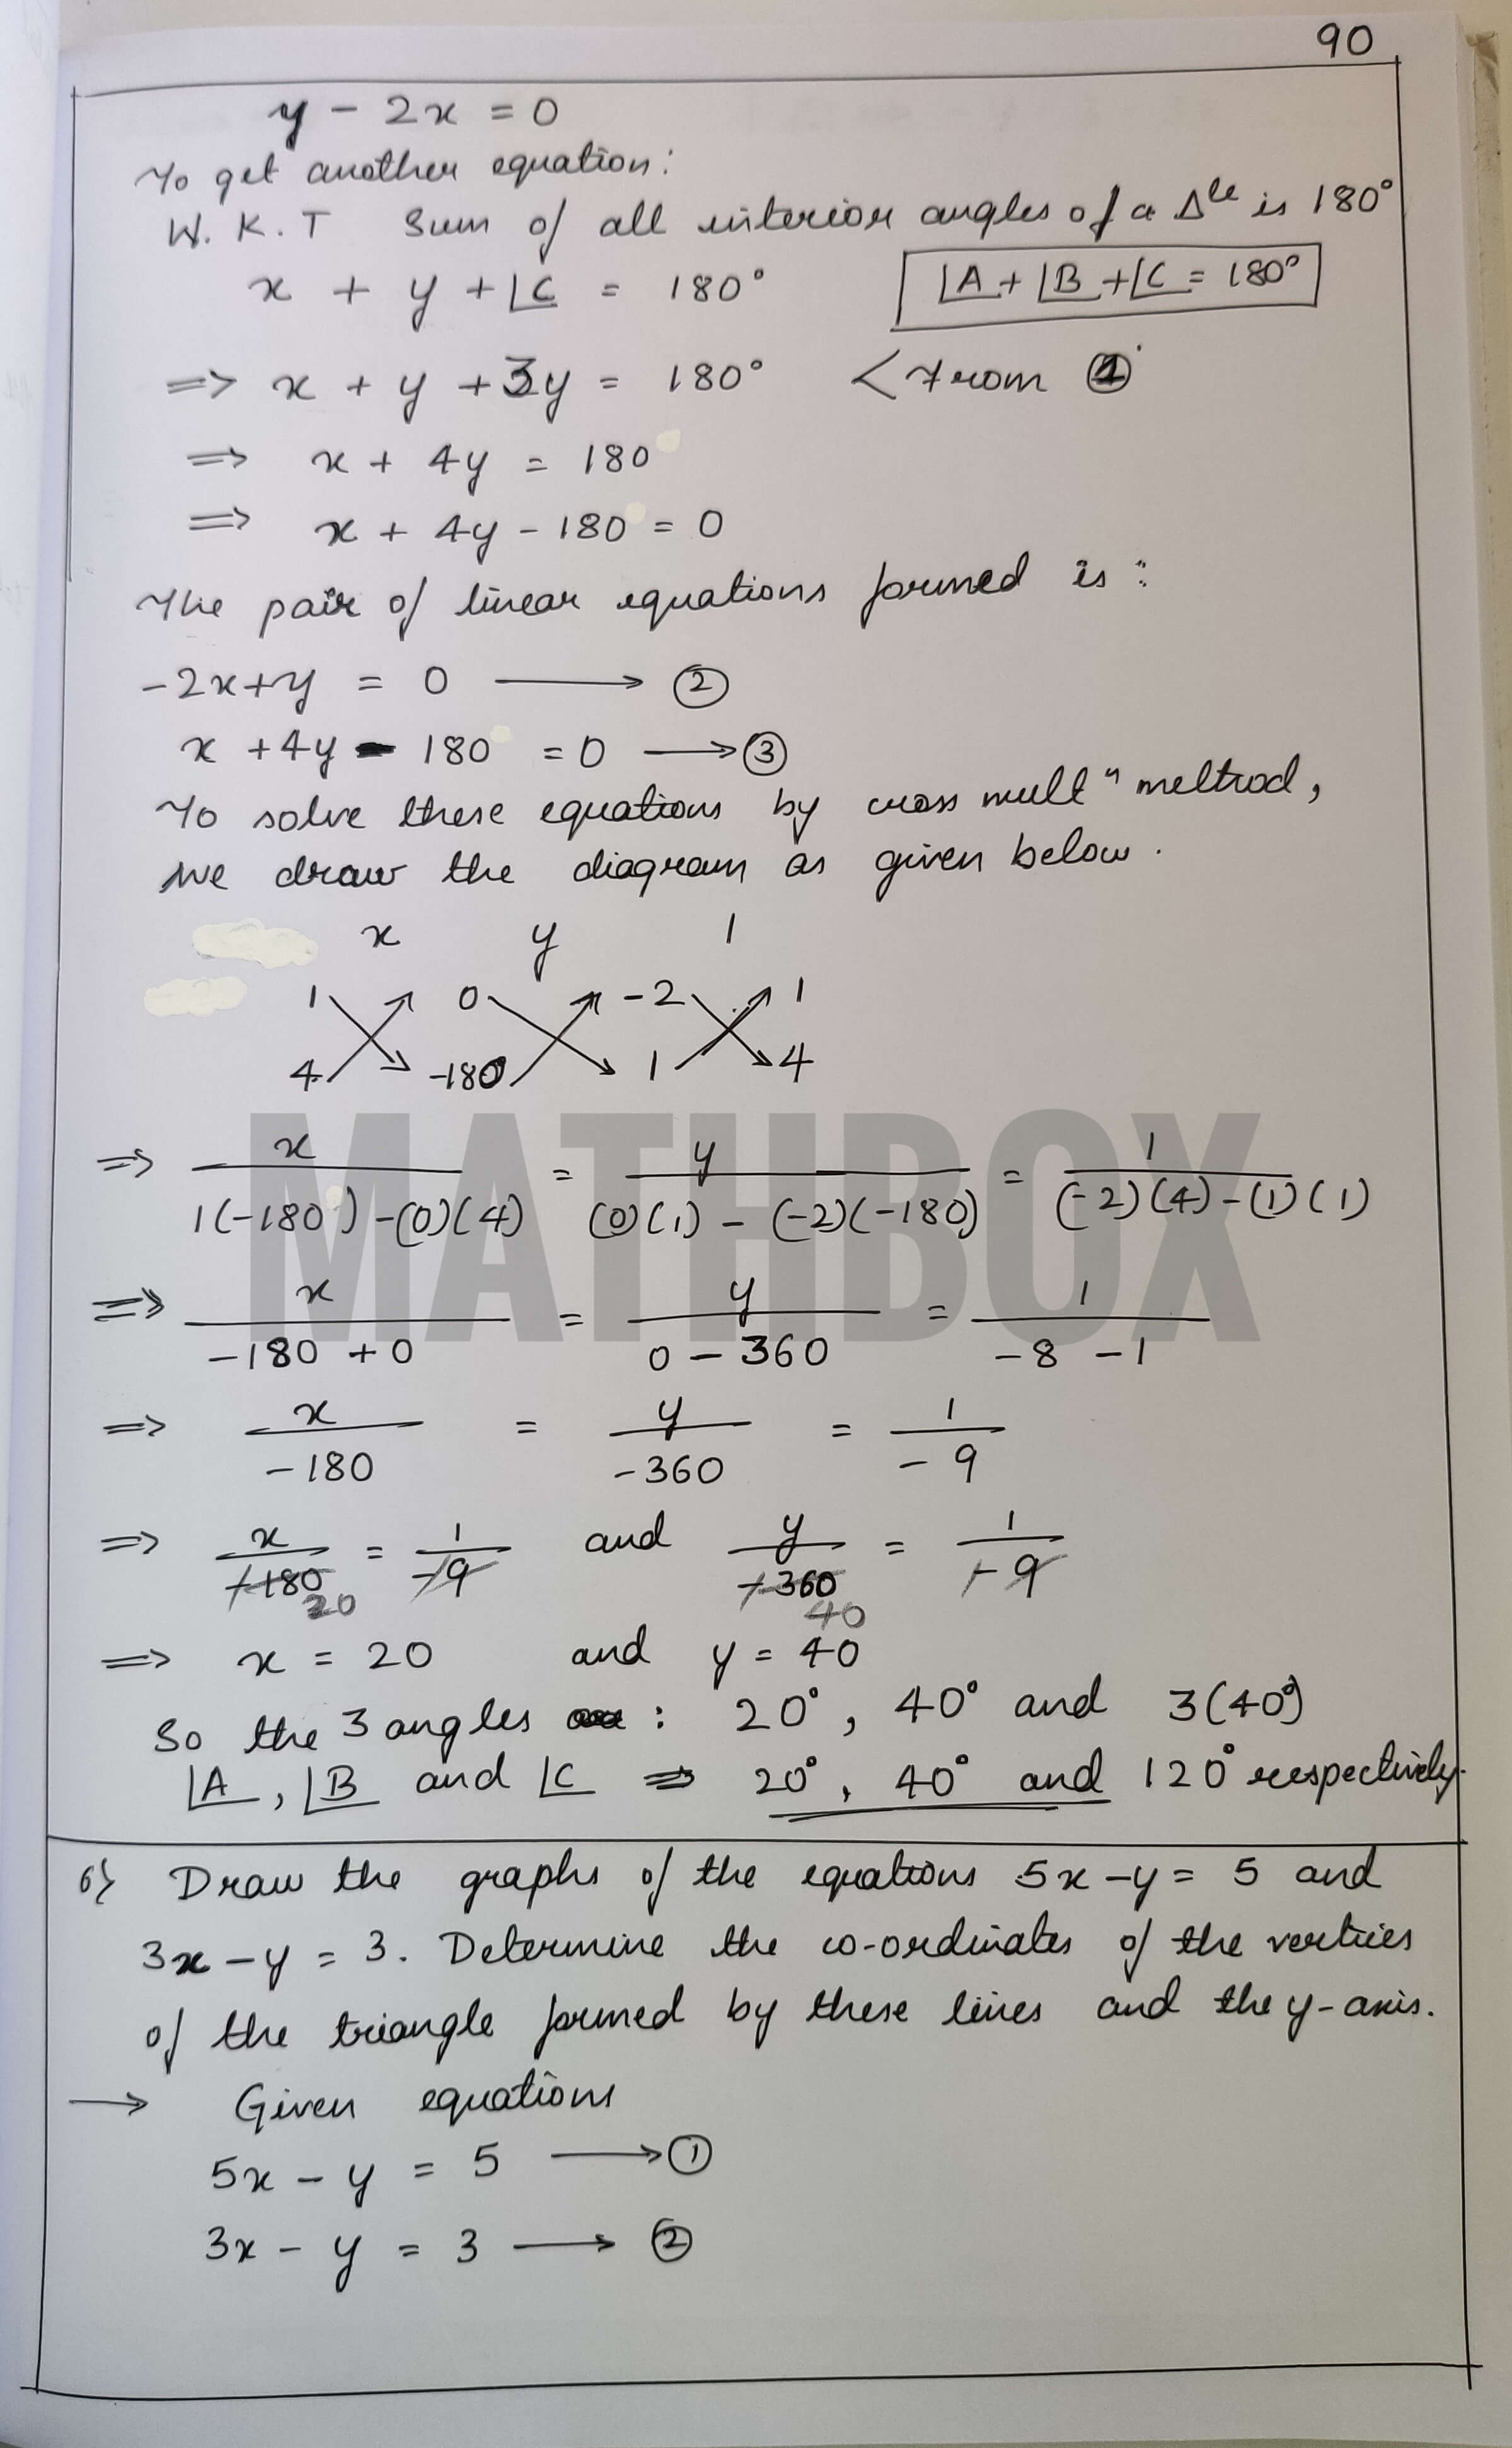 90
y - 2x = 0
To get another equation:
W.K.T Sum of all interior angles of a Δle is 180°
x + y + ∠C = 180°   ∠A + ∠B + ∠C = 180°
=> x + y + 3y = 180°   < From ①
=> x + 4y = 180
=> x + 4y - 180 = 0
The pair of linear equations formed is :
-2x+y = 0 ⟶ ②
x + 4y - 180 = 0 ⟶ ③
To solve these equations by cross multⁿ method,
we draw the diagram as given below.
x y 1
1 0 -2 1
4 -180 1 4
=> x/(1(-180) - (0)(4)) = y/((0)(1) - (-2)(-180)) = 1/((-2)(4) - (1)(1))
=> x/(-180 + 0) = y/(0 - 360) = 1/(-8 - 1)
=> x/-180 = y/-360 = 1/-9
=> x/-180 = 1/-9 and y/-360 = 1/-9
20 40
=> x = 20 and y = 40
So the 3 angles are : 20°, 40° and 3(40°)
∠A, ∠B and ∠C => 20°, 40° and 120° respectively.
6} Draw the graphs of the equations 5x - y = 5 and
3x - y = 3. Determine the co-ordinates of the vertices
of the triangle formed by these lines and the y-axis.
→ Given equations
5x - y = 5 ⟶ ①
3x - y = 3 ⟶ ②
MATHBOX